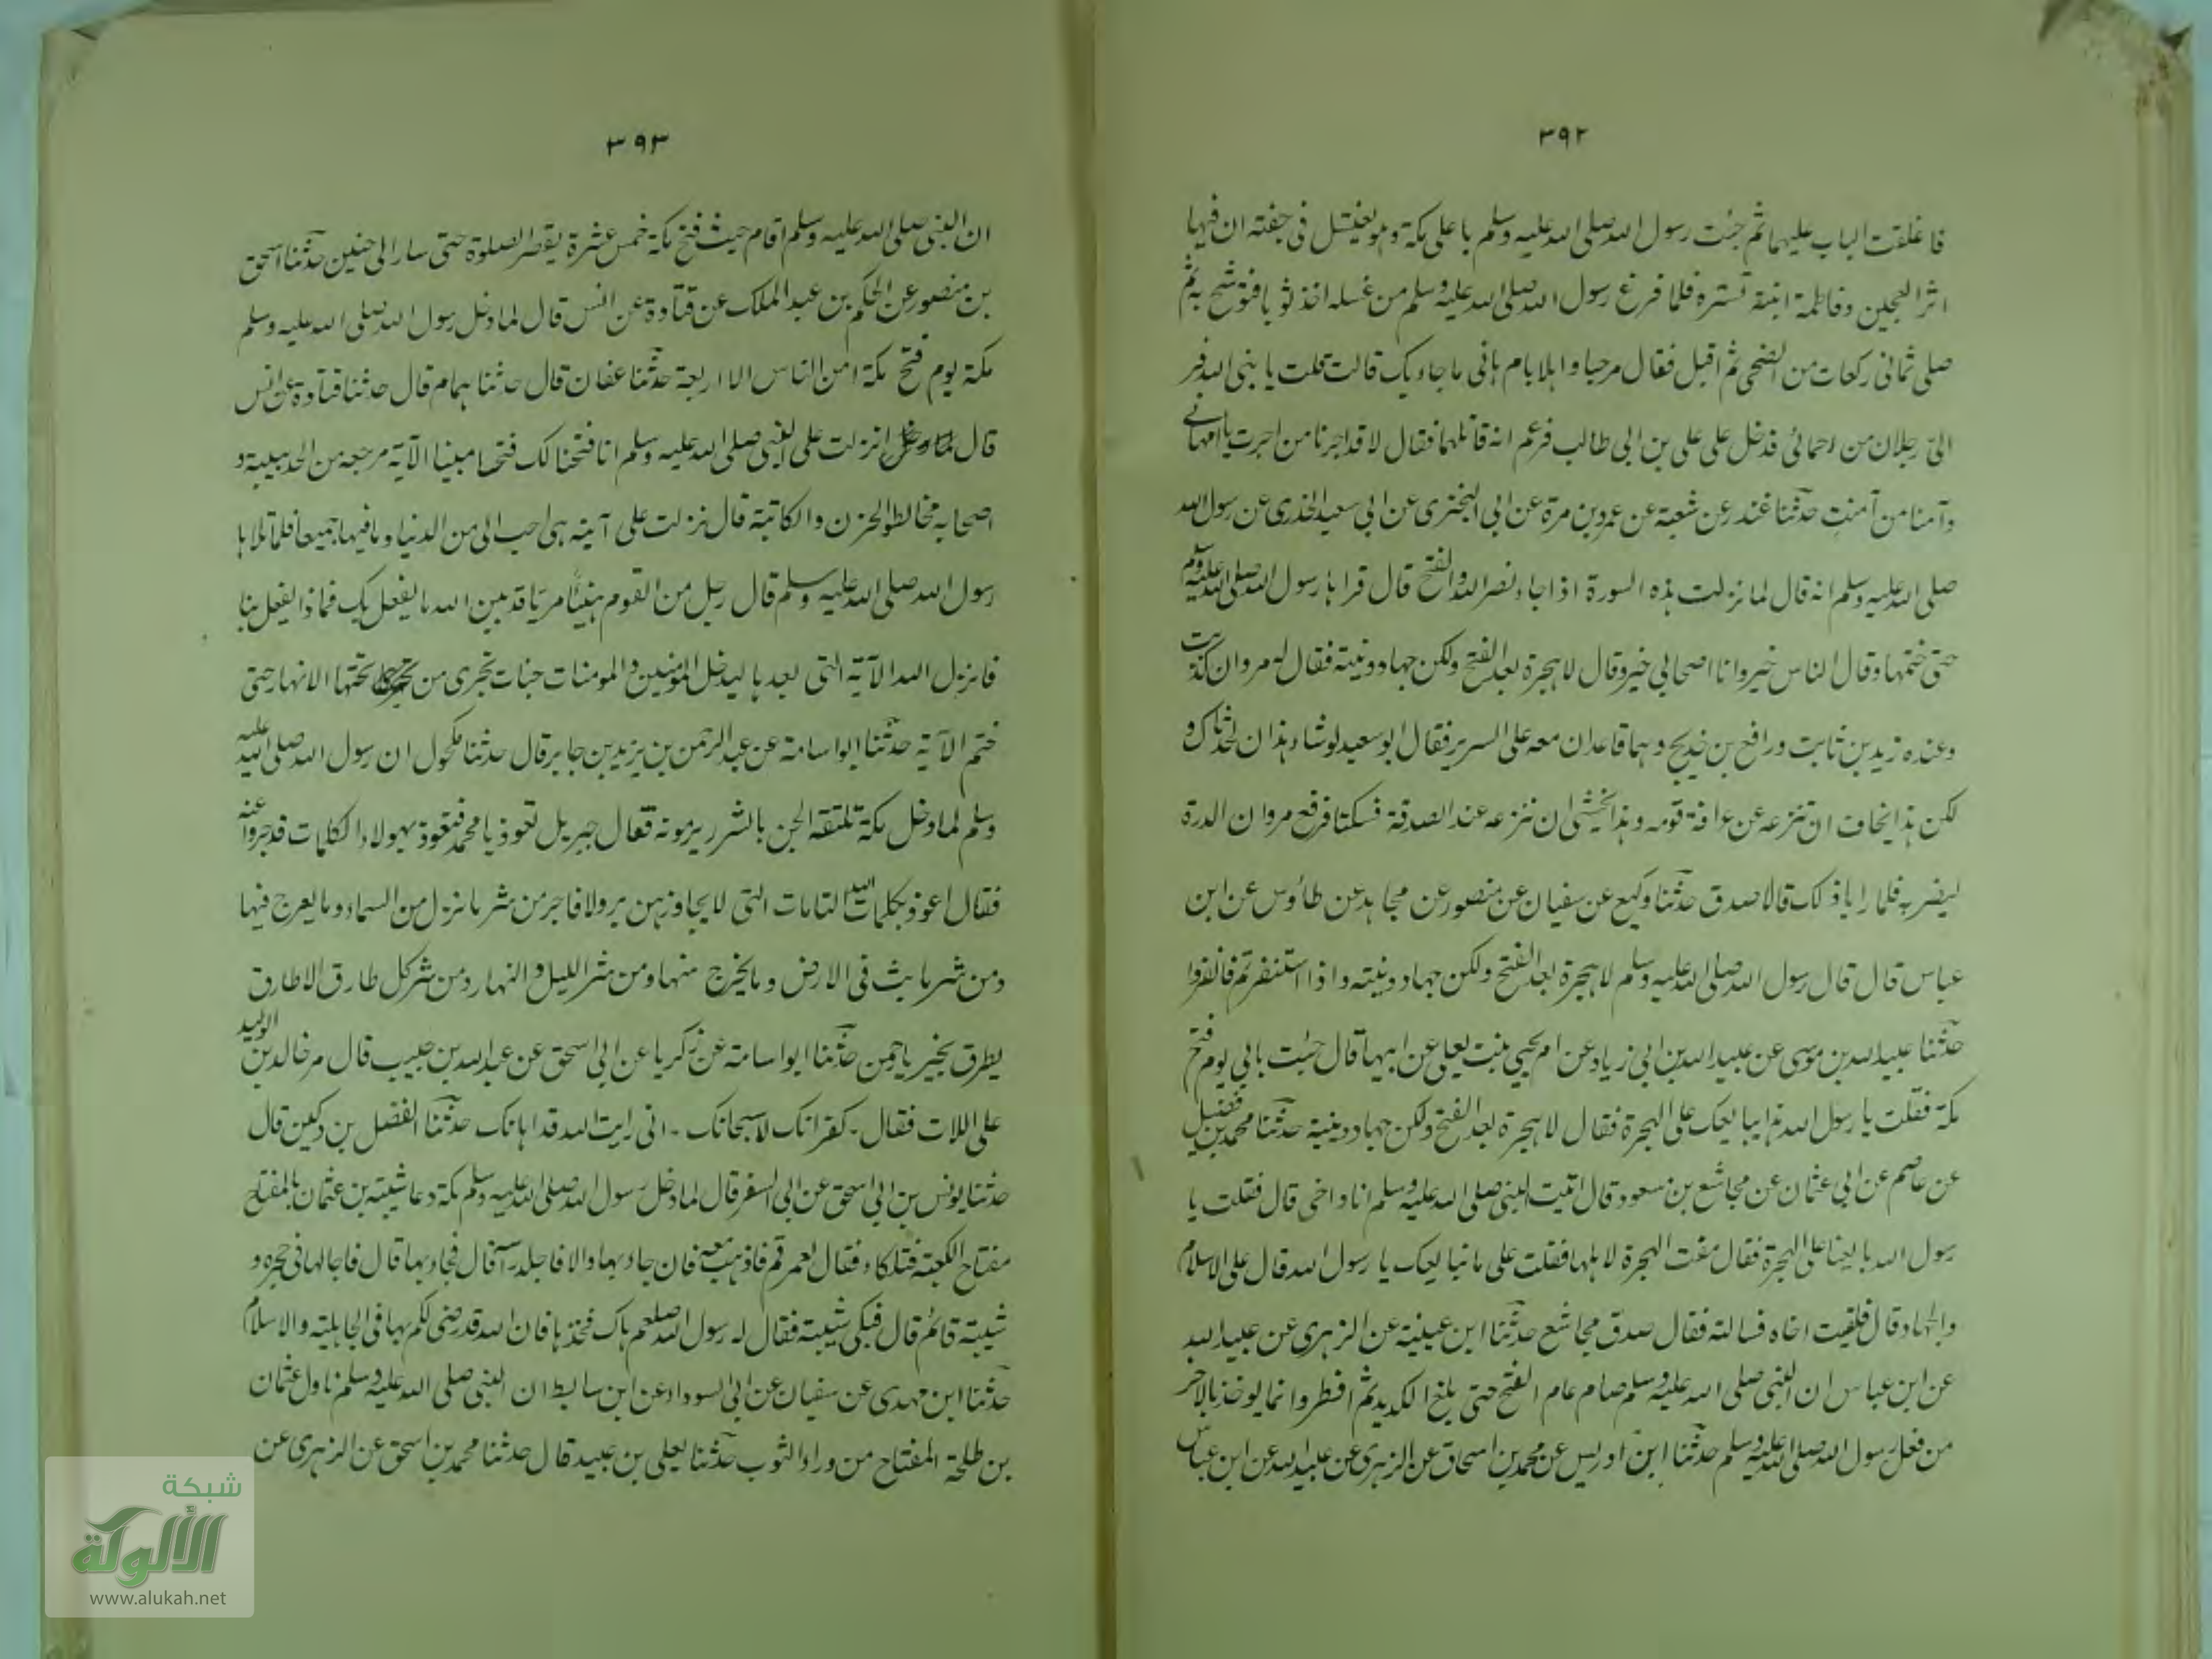 ٣٩٢
فاغلقت الباب عليهما ثم جئت رسول الله صلى الله عليه وسلم باعلى مكة وهو يغتسل فى جفنة ان فيها
اثر العجين وفاطمة ابنته تستره فلما فرغ رسول الله صلى الله عليه وسلم من غسله اخذ ثوبا فتوشح به ثم
صلى ثمانى ركعات من الضحى ثم اقبل فقال مرحبا واهلا بام هانى ما جاء بك قالت قلت يا نبى الله فر
الىّ رجلان من احمائى فدخل على على بن ابى طالب فزعم انه قاتلهما فقال لا قد اجرنا من اجرت يا ام هانى
وآمنا من آمنت حدثنا غندر عن شعبة عن عمرو بن مرة عن ابى البخترى عن ابى سعيد الخدرى عن رسول الله
صلى الله عليه وسلم انه قال لما نزلت هذه السورة اذا جاء نصر الله والفتح قال قرأها رسول الله صلى الله عليه وسلم
حتى ختمها وقال الناس خير وانا اصحابى خير وقال لا هجرة بعد الفتح ولكن جهاد ونية فقال له مروان كذبت
وعنده زيد بن ثابت ورافع بن خديج وهما قاعدان معه على السرير فقال ابو سعيد لو شاء هذان لحدثاك و
لكن هذا يخاف ان تنزعه عن عرافة قومه وهذا يخشى ان تنزعه عند الصدقة فسكتا فرفع مروان الدرة
ليضربه فلما رايا ذلك قالا صدق حدثنا وكيع عن سفيان عن منصور عن مجاهد عن طاؤس عن ابن
عباس قال قال رسول الله صلى الله عليه وسلم لا هجرة بعد الفتح ولكن جهاد ونية واذا استنفرتم فانفروا
حدثنا عبيد الله بن موسى عن عبيد الله بن ابى زياد عن ام يحيى بنت يعلى عن ابيها قال جئت بابى يوم فتح
مكة فقلت يا رسول الله هذا يبايعك على الهجرة فقال لا هجرة بعد الفتح ولكن جهاد ونية حدثنا محمد بن فضيل
عن عاصم عن ابى عثمان عن مجاشع بن مسعود قال اتيت النبى صلى الله عليه وسلم انا واخى قال فقلت يا
رسول الله بايعنا على الهجرة فقال مضت الهجرة لاهلها فقلت على ما نبايعك يا رسول الله قال على الاسلام
والجهاد قال فلقيت اخاه فسالته فقال صدق مجاشع حدثنا ابن عيينة عن الزهرى عن عبيد الله
عن ابن عباس ان النبى صلى الله عليه وسلم صام عام الفتح حتى بلغ الكديد ثم افطر وانما يوخذ بالاخر
من فعل رسول الله صلى الله عليه وسلم حدثنا ابن ادريس عن محمد بن اسحاق عن الزهرى عن عبيد الله عن ابن عباس
٣٩٣
ان النبى صلى الله عليه وسلم اقام حيث فتح مكة خمس عشرة يقصر الصلوة حتى سار الى حنين حدثنا اسحق
بن منصور عن الحكم بن عبد الملك عن قتادة عن انس قال لما دخل رسول الله صلى الله عليه وسلم
مكة يوم فتح مكة امن الناس الا اربعة حدثنا عفان قال حدثنا همام قال حدثنا قتادة عن انس
قال انزلت على النبى صلى الله عليه وسلم انا فتحنا لك فتحا مبينا الآية مرجعه من الحديبية و
اصحابه مخالطو الحزن والكاتبة قال نزلت على آية هى احب الى من الدنيا وما فيها جميعا فلما تلاها
رسول الله صلى الله عليه وسلم قال رجل من القوم هنيئا مريا قد بين الله ما يفعل بك فماذا يفعل بنا
فانزل الله الآية التى بعدها ليدخل المومنين والمومنات جنات تجرى من تحتها الانهار حتى
ختم الآية حدثنا ابو اسامة عن عبد الرحمن بن يزيد بن جابر قال حدثنا مكحول ان رسول الله صلى الله عليه
وسلم لما دخل مكة تلقته الجن بالشرر يرمونه فقال جبريل تعوذ يا محمد فتعوذ بهولاء الكلمات فدحروا عنه
فقال اعوذ بكلمات الله التامات التى لا يجاوزهن بر ولا فاجر من شر ما نزل من السماء وما يعرج فيها
ومن شر ما بث فى الارض وما يخرج منها ومن شر الليل والنهار ومن شر كل طارق الا طارق
يطرق بخير يا رحمن حدثنا ابو اسامة عن زكريا عن ابى اسحق عن عبد الله بن حبيب قال مر خالد بن الوليد
على اللات فقال - كفرانك لا سبحانك - انى رايت الله قد اهانك حدثنا الفضل بن دكين قال
حدثنا يونس بن ابى اسحق عن ابى السفر قال لما دخل رسول الله صلى الله عليه وسلم مكة دعا شيبة بن عثمان بالمفتاح
مفتاح الكعبة فتلكاء فقال لعمر قم فاذهب معه فان جاء بها والا فاجلد راسه قال فجاء بها قال فاجالها فى حجره و
شيبة قائم قال فبكى شيبة فقال له رسول الله صلعم هاك فخذها فان الله قد رضى لكم بها فى الجاهلية والاسلام
حدثنا ابن مهدى عن سفيان عن ابى السوداء عن ابن سابط ان النبى صلى الله عليه وسلم ناول عثمان
بن طلحة المفتاح من وراء الثوب حدثنا يعلى بن عبيد قال حدثنا محمد بن اسحق عن الزهرى عن
شبكة
الألوكة
www.alukah.net